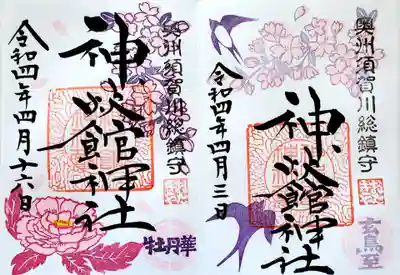 奥州須賀川総鎮守
神炊館神社
令和四年四月十六日
牡丹華
奥州須賀川総鎮守
神炊館神社
令和四年四月三日
玄鳥至